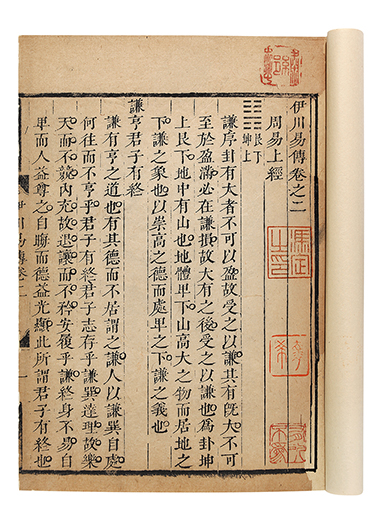 伊川易傳卷之二
周易上經
艮下
坤上
謙序卦有大者不可以盈故受之以謙其有既大不可
至於盈滿必在謙損故大有之後受之以謙也為卦坤
上艮下地中有山也地體卑下山高大之物而居地之
下謙之象也以崇高之德而處卑之下謙之義也
謙亨君子有終
謙有亨之道也有其德而不居謂之謙人以謙巽自處
何往而不亨乎君子有終君子志存乎謙巽達理故樂
天而不競內充故退讓而不矜安履乎謙終身不易自
卑而人益尊之自晦而德益光顯此所謂君子有終也
伊川易傳卷二
一